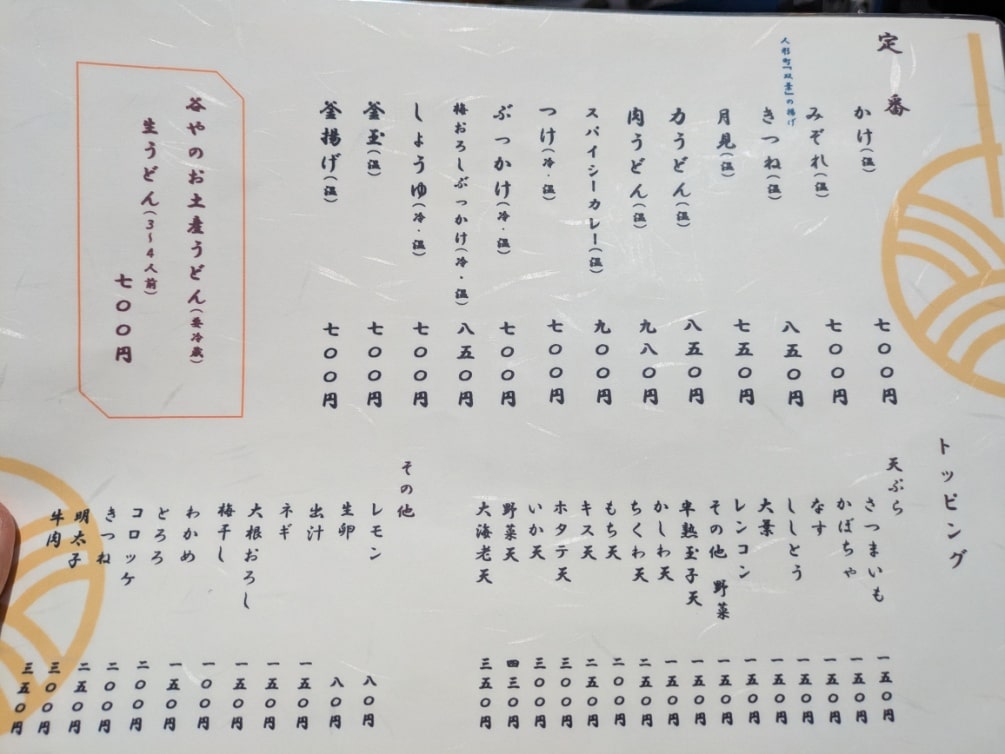 定番
かけ(温) 七〇〇円
みぞれ(温) 七〇〇円
人形町「双葉」の揚げ
きつね(温) 八五〇円
月見(温) 七五〇円
力うどん(温) 八五〇円
肉うどん(温) 九八〇円
スパイシーカレー(温) 九〇〇円
つけ(冷・温) 七〇〇円
ぶっかけ(冷・温) 七〇〇円
梅おろしぶっかけ(冷・温) 八五〇円
しょうゆ(冷・温) 七〇〇円
釜玉(温) 七〇〇円
釜揚げ(温) 七〇〇円
谷やのお土産うどん(要冷蔵)
生うどん(3〜4人前)
七〇〇円
トッピング
天ぷら
さつまいも 一五〇円
かぼちゃ 一五〇円
なす 一五〇円
ししとう 一五〇円
大葉 一五〇円
レンコン 一五〇円
その他 野菜 一五〇円
半熟玉子天 一五〇円
かしわ天 一五〇円
ちくわ天 二五〇円
もち天 二〇〇円
キス天 二五〇円
ホタテ天 三〇〇円
いか天 三〇〇円
野菜天 四三〇円
大海老天 三五〇円
その他
レモン 八〇円
生卵 八〇円
出汁 一五〇円
ネギ 一五〇円
大根おろし 一五〇円
梅干し 一〇〇円
わかめ 一五〇円
とろろ 二〇〇円
コロッケ 二〇〇円
きつね 二五〇円
明太子 三〇〇円
牛肉 三五〇円